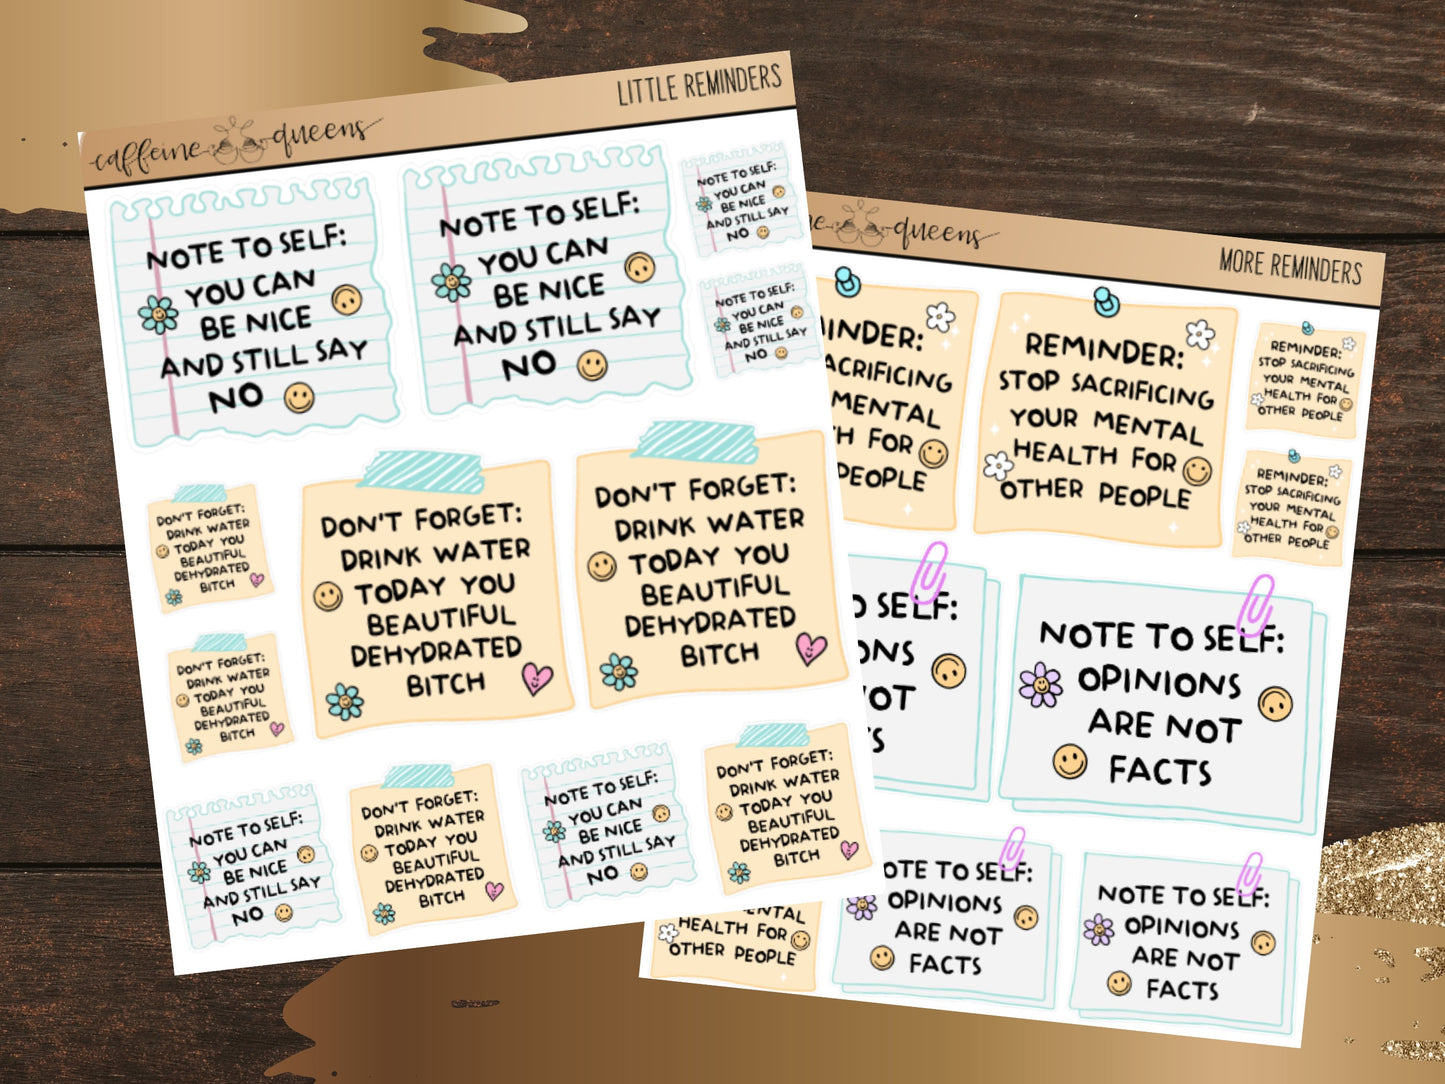 caffeine queens
LITTLE REMINDERS
NOTE TO SELF:
YOU CAN
BE NICE
AND STILL SAY
NO
NOTE TO SELF:
YOU CAN
BE NICE
AND STILL SAY
NO
NOTE TO SELF:
YOU CAN
BE NICE
AND STILL SAY
NO
NOTE TO SELF:
YOU CAN
BE NICE
AND STILL SAY
NO
DON'T FORGET:
DRINK WATER
TODAY YOU
BEAUTIFUL
DEHYDRATED
BITCH
DON'T FORGET:
DRINK WATER
TODAY YOU
BEAUTIFUL
DEHYDRATED
BITCH
DON'T FORGET:
DRINK WATER
TODAY YOU
BEAUTIFUL
DEHYDRATED
BITCH
DON'T FORGET:
DRINK WATER
TODAY YOU
BEAUTIFUL
DEHYDRATED
BITCH
NOTE TO SELF:
YOU CAN
BE NICE
AND STILL SAY
NO
DON'T FORGET:
DRINK WATER
TODAY YOU
BEAUTIFUL
DEHYDRATED
BITCH
NOTE TO SELF:
YOU CAN
BE NICE
AND STILL SAY
NO
DON'T FORGET:
DRINK WATER
TODAY YOU
BEAUTIFUL
DEHYDRATED
BITCH
ne queens
MORE REMINDERS
INDER:
ACRIFICING
MENTAL
H FOR
PEOPLE
REMINDER:
STOP SACRIFICING
YOUR MENTAL
HEALTH FOR
OTHER PEOPLE
REMINDER:
STOP SACRIFICING
YOUR MENTAL
HEALTH FOR
OTHER PEOPLE
REMINDER:
STOP SACRIFICING
YOUR MENTAL
HEALTH FOR
OTHER PEOPLE
O SELF:
ONS
OT
S
NOTE TO SELF:
OPINIONS
ARE NOT
FACTS
ENTAL
HEALTH FOR
OTHER PEOPLE
OTE TO SELF:
OPINIONS
ARE NOT
FACTS
NOTE TO SELF:
OPINIONS
ARE NOT
FACTS